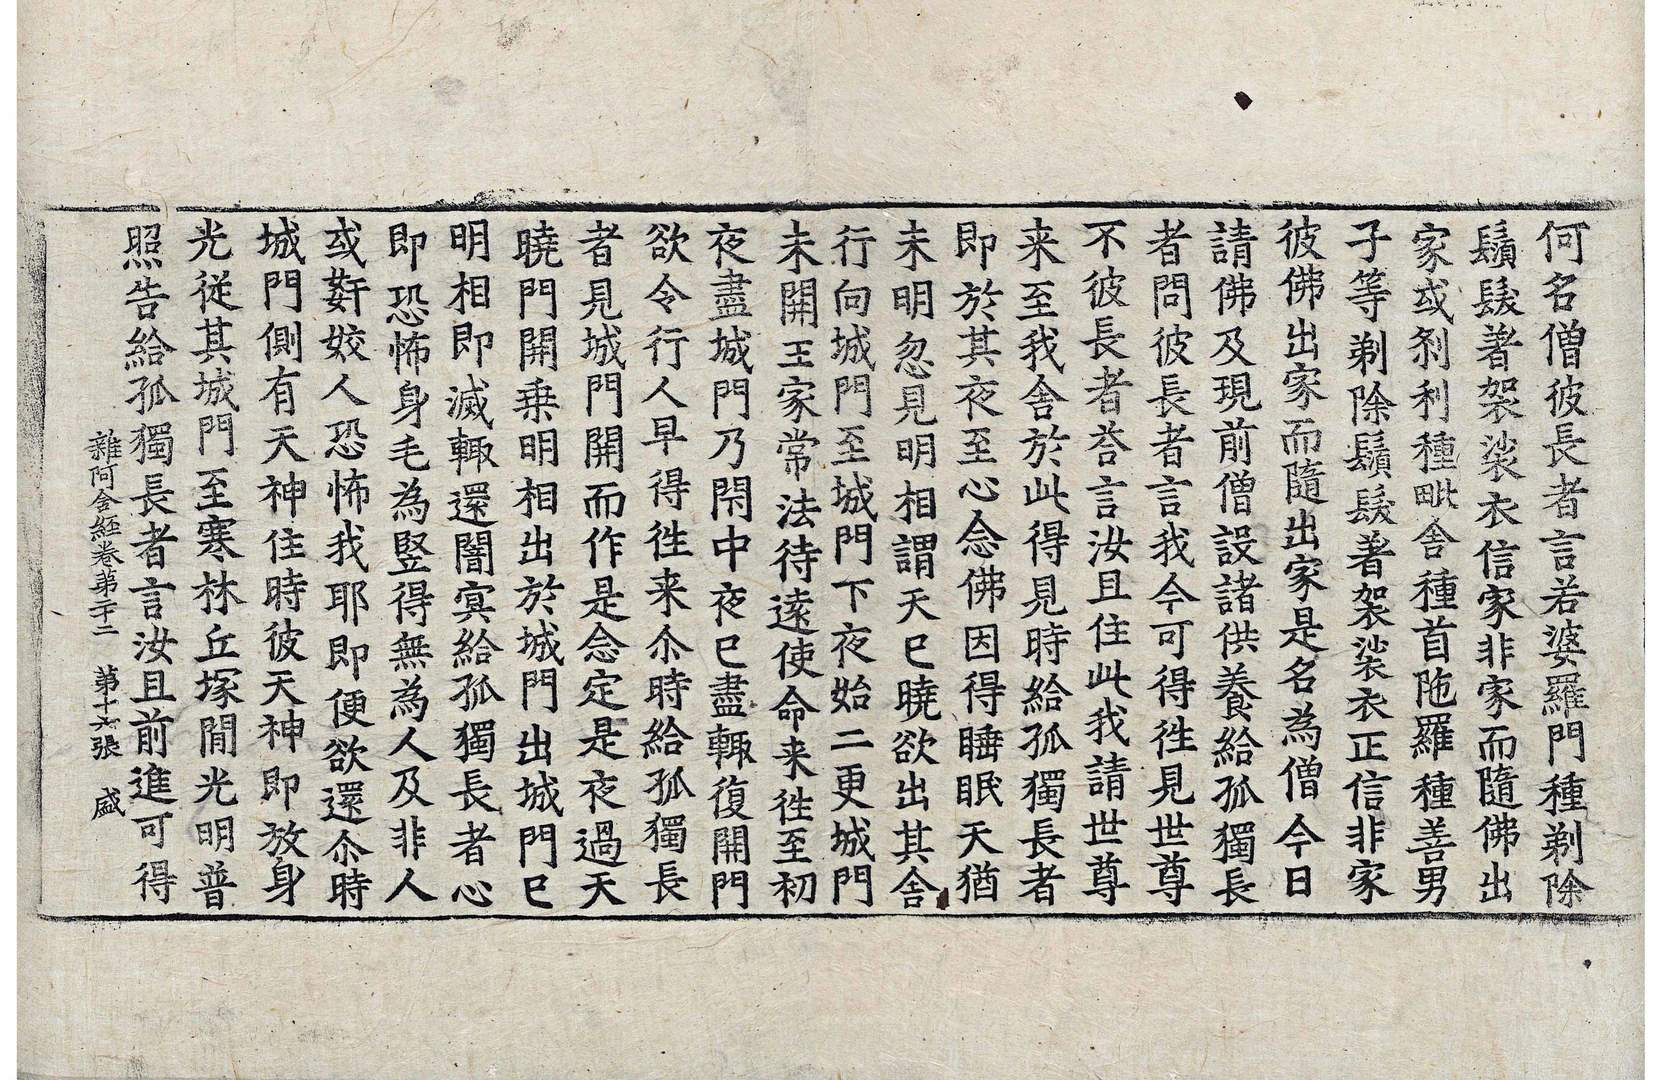 何名僧彼長者言若婆羅門種剃除
鬚髮著袈裟衣信家非家而隨佛出
家或刹利種毗舍種首陁羅種善男
子等剃除鬚髮著袈裟衣正信非家
彼佛出家而隨出家是名為僧今日
請佛及現前僧設諸供養給孤獨長
者問彼長者言我今可得徃見世尊
不彼長者荅言汝且住此我請世尊
来至我舍於此得見時給孤獨長者
即於其夜至心念佛因得睡眠天猶
未明忽見明相謂天巳曉欲出其舍
行向城門至城門下夜始二更城門
未開王家常法待遠使命来徃至初
夜盡城門乃閇中夜巳盡輙復開門
欲令行人早得徃来尒時給孤獨長
者見城門開而作是念定是夜過天
曉門開乗明相出於城門出城門巳
明相即滅輙還闇冥給孤獨長者心
即恐怖身毛為竪得無為人及非人
或姧姣人恐怖我耶即便欲還尒時
城門側有天神住時彼天神即放身
光従其城門至寒林丘塚閒光明普
照告給孤獨長者言汝且前進可得
雜阿含經卷第二十二　第十六張　盛